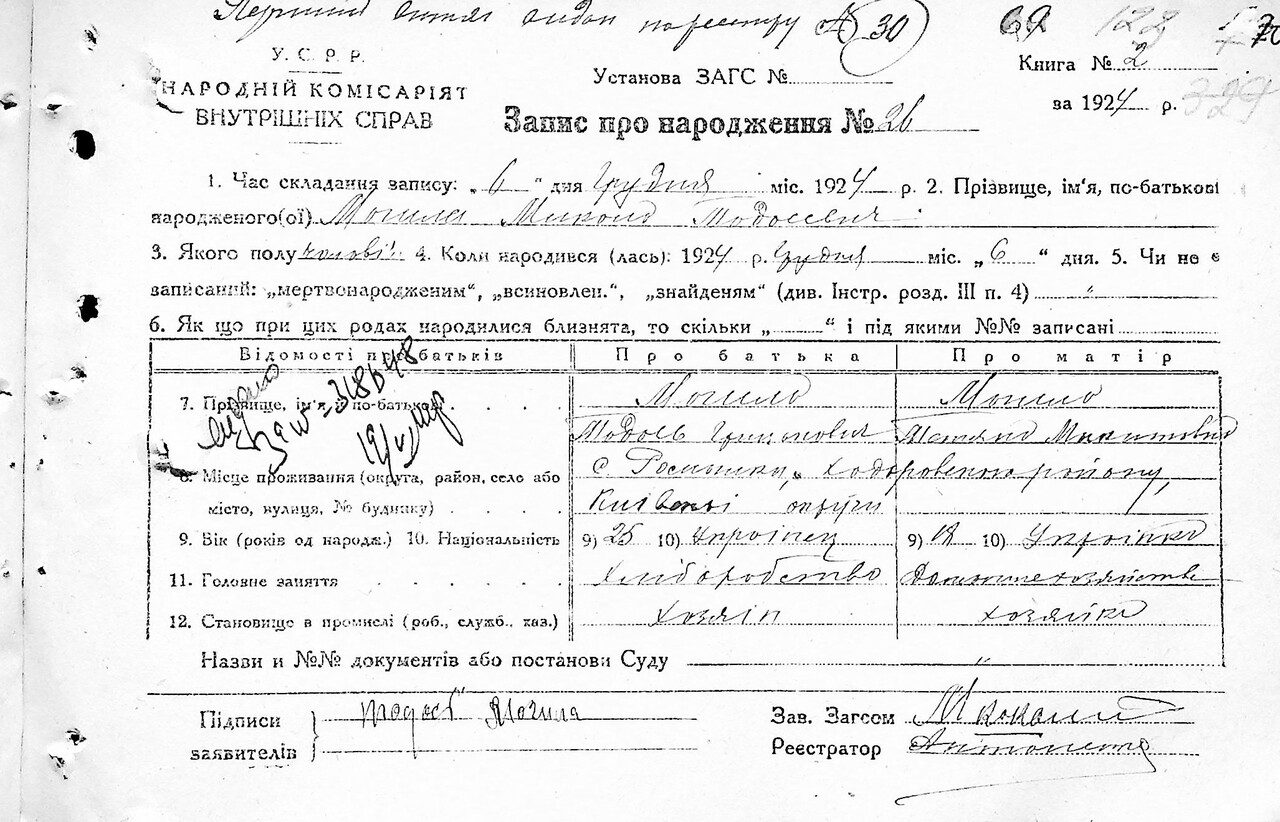 Перший витяг видан по реестру № 30
69 122
У. С. Р. Р.
НАРОДНІЙ КОМІСАРІЯТ
ВНУТРІШНІХ СПРАВ
Установа ЗАГС №
Книга № 2
за 1924 р. 329
Запис про народження № 26
1. Час складання запису: „6" дня Грудня міс. 1924 р. 2. Прізвище, ім'я, по-батькові
народженого(ої) Могила Микола Тодосевич
3. Якого полу чолові: 4. Коли народився (лась): 1924 р. Грудня міс. „6" дня. 5. Чи не є
записаний: „мертвонародженим", „всиновлен.", „знайденям" (див. Інстр. розд. III п. 4) "
6. Як що при цих родах народилися близнята, то скільки „ " і під якими №№ записані
Відомості про батьків Про батька Про матір
7. Прізвище, ім'я й по-батькові Могила Могила
Тодось Григорович Тетяна Микитовна
8. Місце проживання (округа, район, село або с. Ходоровского району,
місто, вулиця, № будинку) Київської округи
9. Вік (років од народж.) 10. Національність 9) 25 10) Украінец 9) 10) Украінка
11. Головне заняття Хліборобство Домашнехозяйство
12. Становище в промислі (роб., служб., хаз.) Хозяін хозяйка
Назви и №№ документів або постанови Суду "
Підписи
заявителів
Тодось Могила
Зав. Загсом
Реєстратор